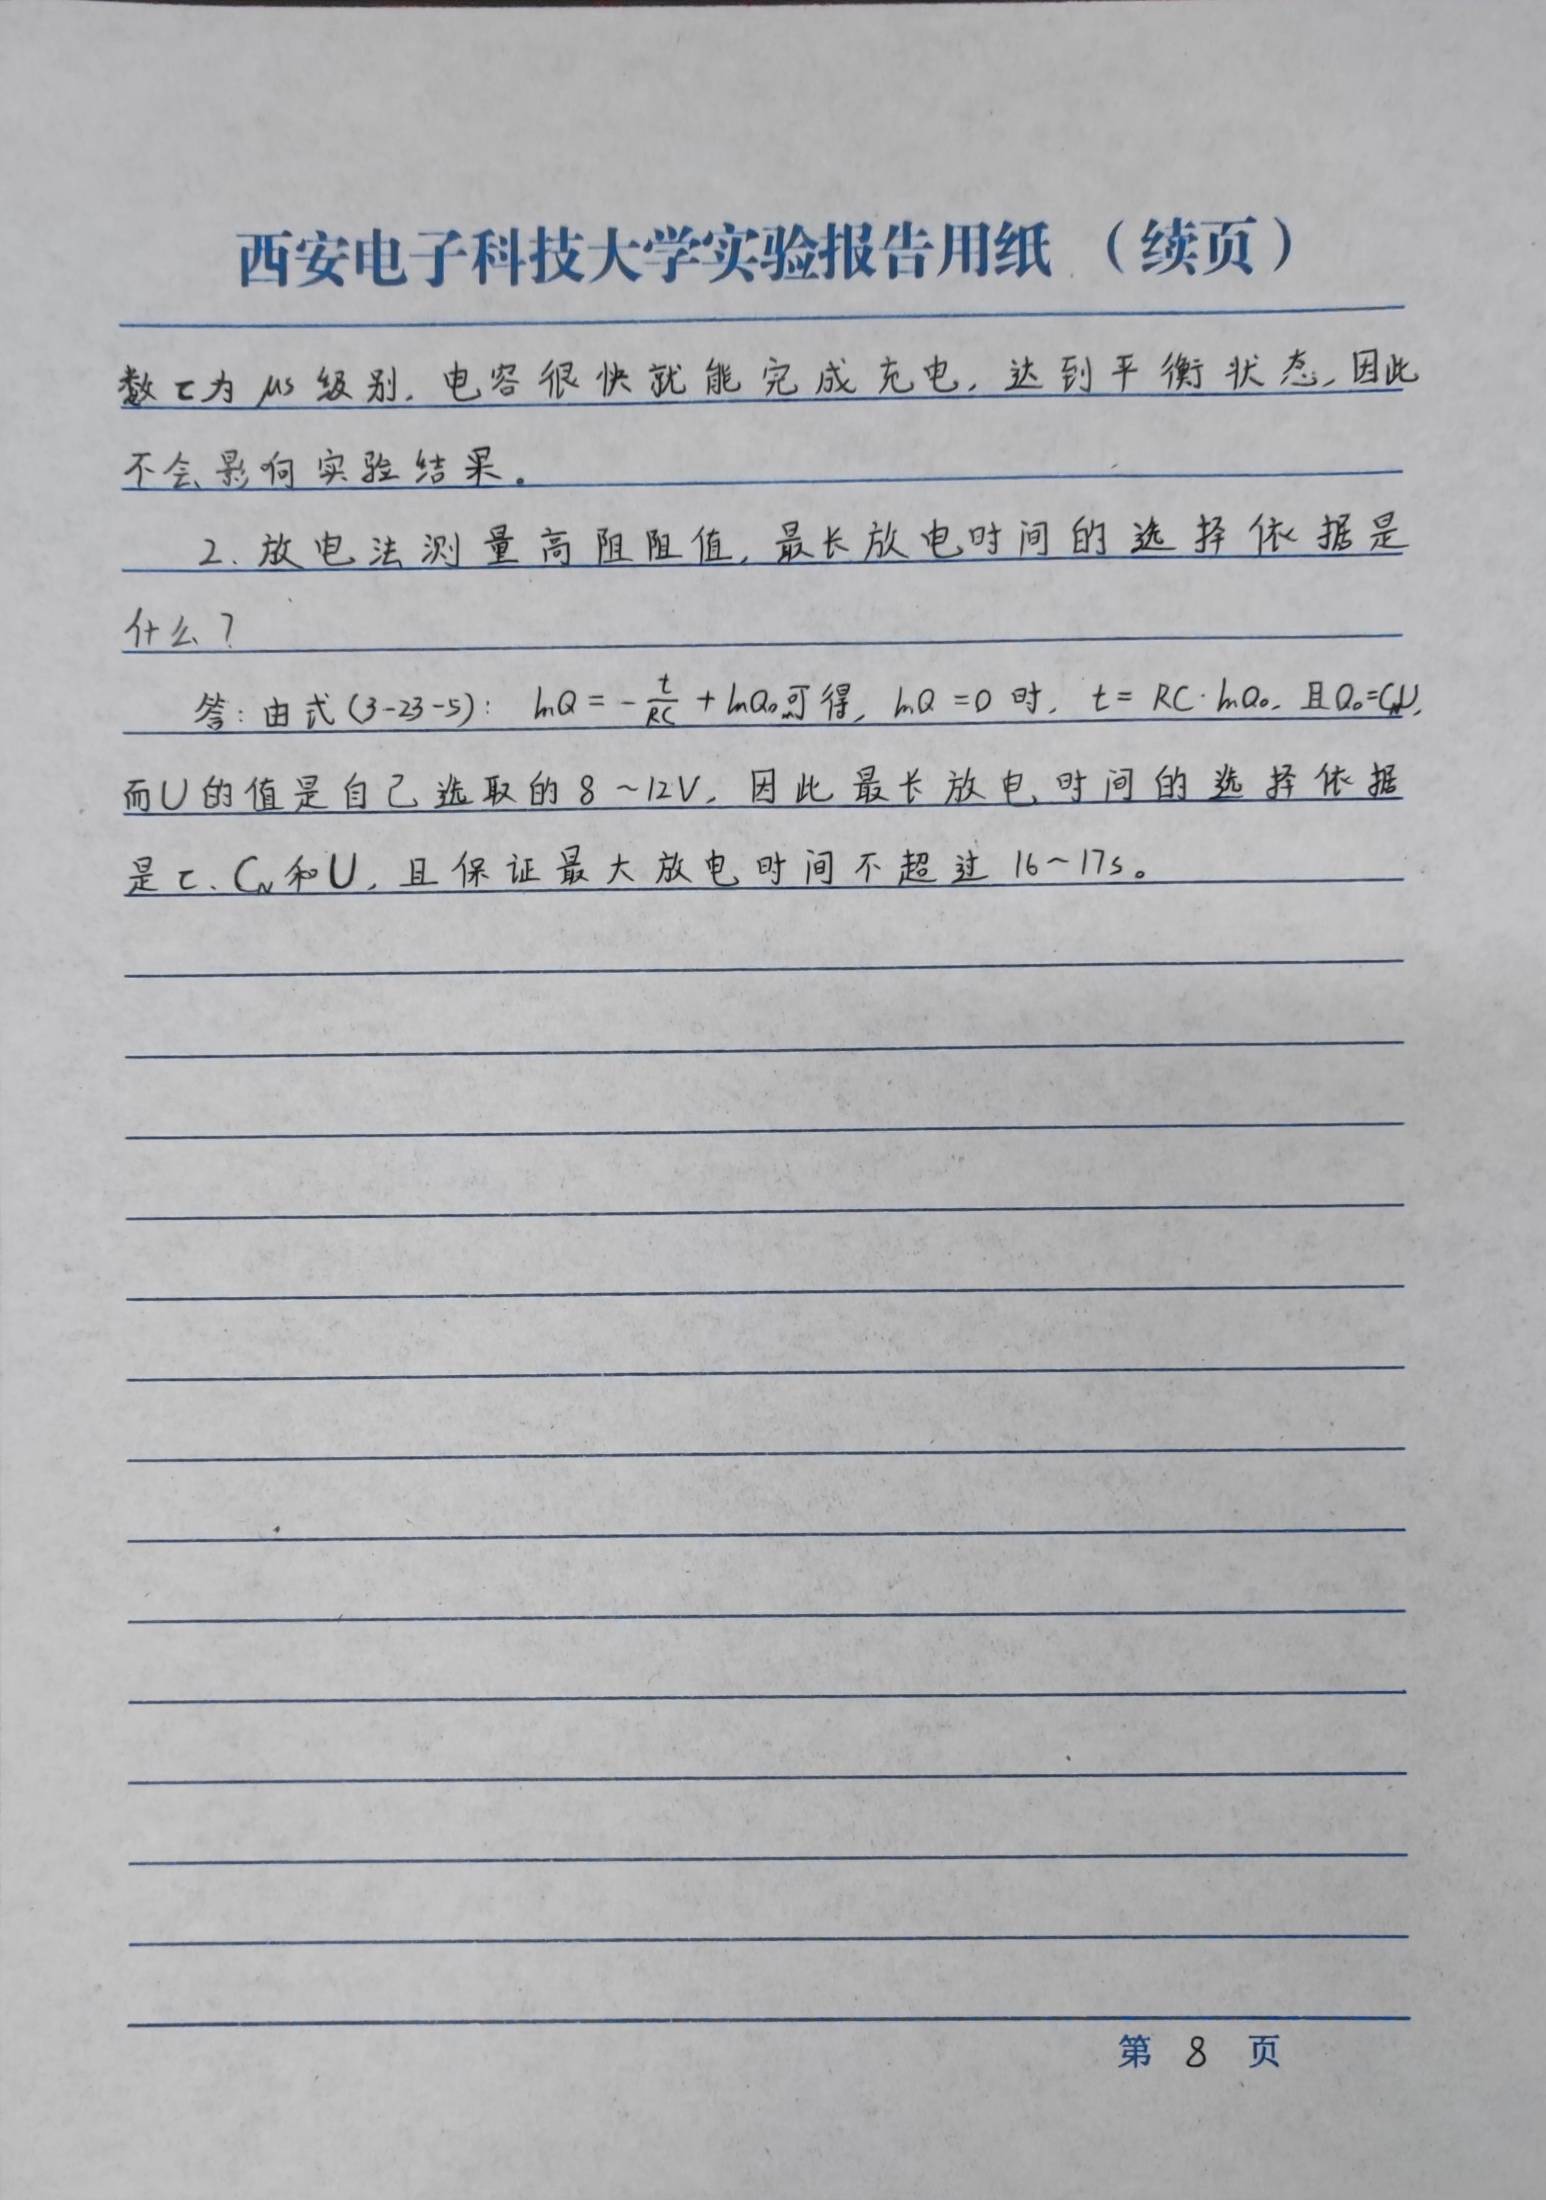 西安电子科技大学实验报告用纸（续页）
数τ为μs级别，电容很快就能完成充电，达到平衡状态，因此
不会影响实验结果。
2. 放电法测量高阻阻值，最长放电时间的选择依据是
什么？
答：由式(3-23-5)： lnQ = -t/RC + lnQ₀可得，lnQ = 0 时，t = RC·lnQ₀，且Q₀=C_NU，
而U的值是自己选取的8~12V，因此最长放电时间的选择依据
是τ、C_N和U，且保证最大放电时间不超过16~17s。
第 8 页